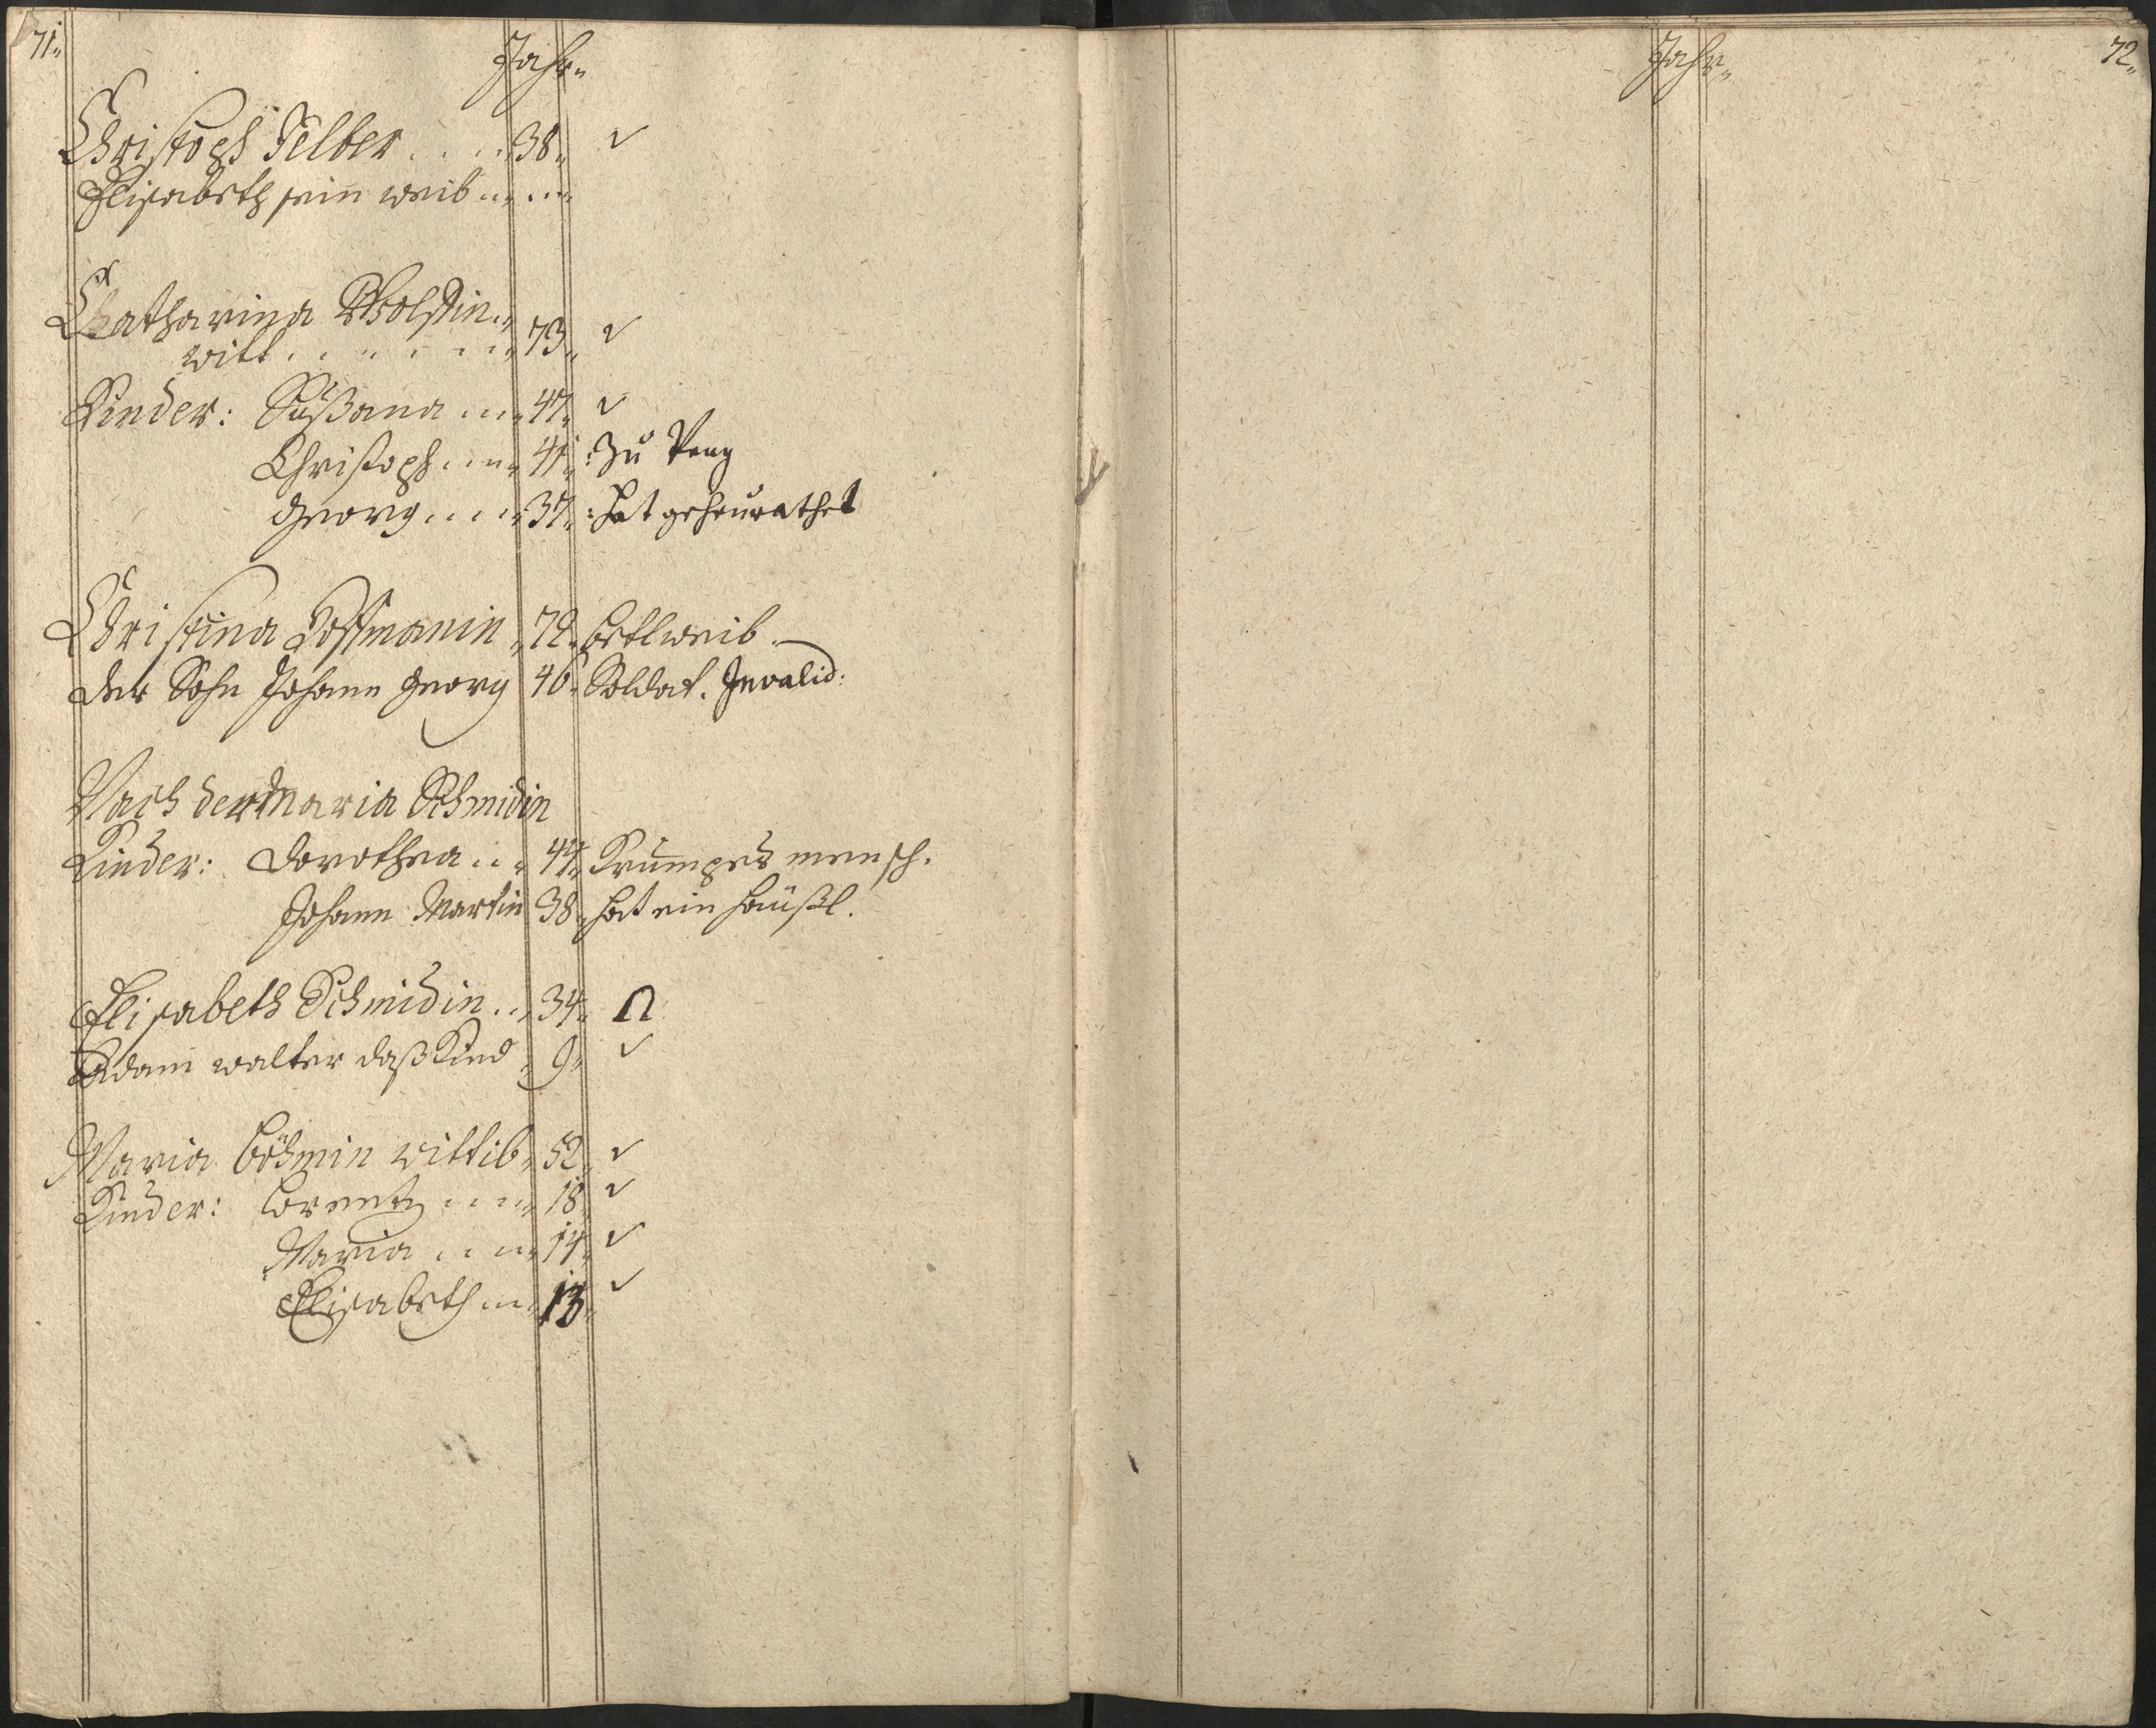 71.
Jahr.
Christoph Felber .... 38. ✓
Elisabeth sein weib ... ...
Catharina Wolfin..
witt ....... 73. ✓
Kinder: Sußana .... 47. ✓
Christoph .... 41. : Zu Prag
Georg .... 37. : hat geheurathet
Christina Hoffmanin . 72. betlweib.
der Sohn Johann Georg 46. Soldat. Invalid:
Nach der Maria Schmidin
Kinder: Dorothea ... 44. Krumpes mensch.
Johann Martin 38. hat ein häußl.
Elisabeth Schmidin .. 34. Ω
Adam walter daß Kind . 9. ✓
Maria Böhmin wittib. 52. ✓
Kinder: Lorentz .... 18. ✓
Maria .... 14. ✓
Elisabeth ... 13. ✓
Jahr.
72.